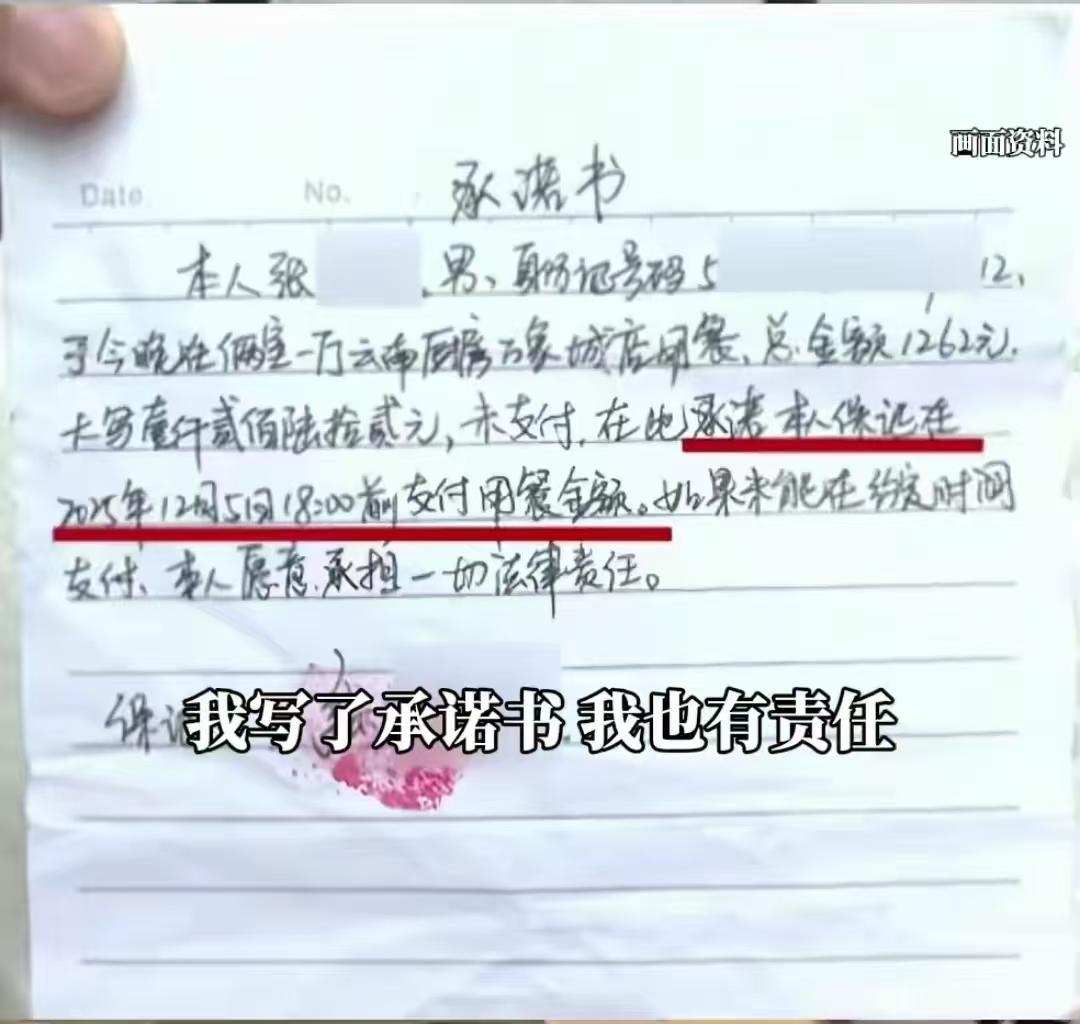 画面资料
Date. No. 承诺书
本人张 ,男、身份证号码5 12,
于今晚在俩室一厅云南厨房万象城店用餐,总金额1262元.
大写壹仟贰佰陆拾贰元,未支付,在此承诺本人保证在
2025年12月5日18:00前支付用餐金额。如果未能在约定时间
支付、本人愿意承担一切法律责任。
保证
我写了承诺书 我也有责任